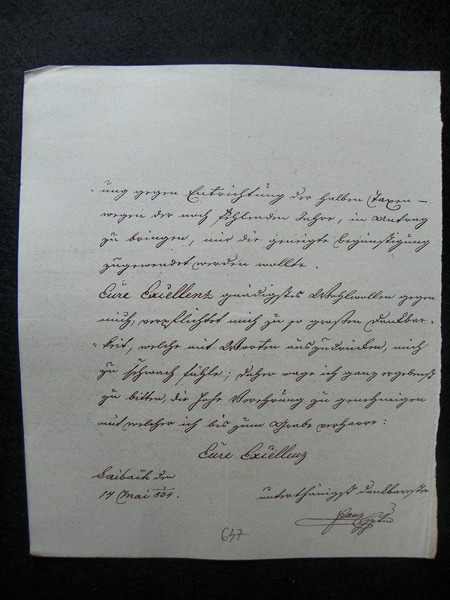 ung gegen Entrichtung der halben Taxen —
wegen der noch fehlenden Jahre, in Antrag
zu bringen, mir die geneigte Begünstigung
zugewendet werden wollte.
Eure Excellenz gnädigstes Wohlwollen gegen
mich, verpflichtet mich zu so großen Dankbar-
keit, welche mit Worten auszudrücken, mich
zu schwach fühle; daher wage ich ganz ergebenst
zu bitten, die hohe Verehrung zu genehmigen
mit welcher ich bis zum Grabe verharre:
Eure Excellenz
Laibach den
17 Mai 834.
unterthänigst dankbarster
Franz
647